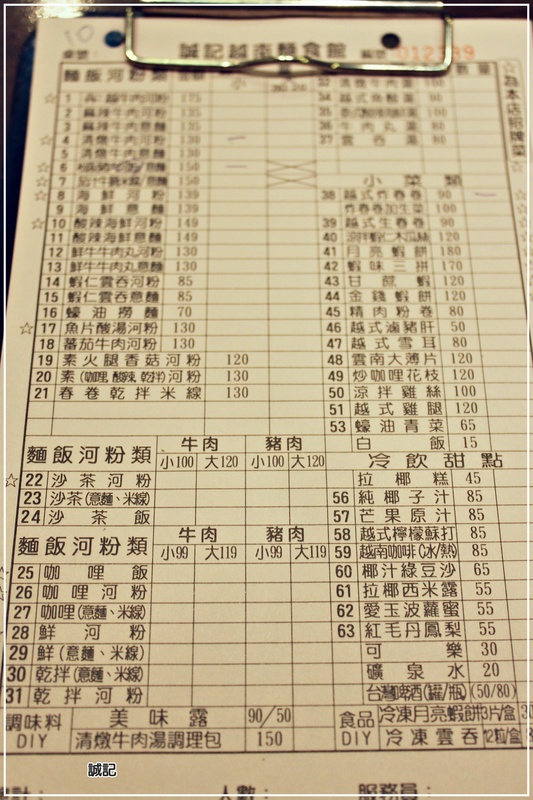 10
桌號： 誠記越南麵食館 編號 012339
麵飯河粉類 數量
☆為本店招牌菜
☆ 1 牛肉河粉 175
2 麻辣牛肉河粉 135
3 麻辣牛肉意麵 135
☆ 4 清燉牛肉河粉 130
5 清燉牛肉意麵 130
☆ 6 150
☆ 7 150
☆ 8 海鮮河粉 139
9 海鮮意麵 139
☆ 10 酸辣海鮮河粉 149
11 酸辣海鮮意麵 149
12 鮮牛牛肉丸河粉 130
13 鮮牛牛肉丸意麵 130
14 蝦仁雲吞河粉 85
15 蝦仁雲吞意麵 85
16 蠔油撈麵 70
☆ 17 魚片酸湯河粉 130
18 蕃茄牛肉河粉 130
19 素火腿香菇河粉 120
20 素(咖哩,酸辣,乾拌)河粉 130
21 春卷乾拌米線 130
麵飯河粉類 牛肉 豬肉
小100 大120 小100 大120
☆ 22 沙茶河粉
23 沙茶(意麵、米線)
24 沙茶飯
麵飯河粉類 牛肉 豬肉
小99 大119 小99 大119
25 咖哩飯
26 咖哩河粉
27 咖哩(意麵、米線)
28 鮮河粉
29 鮮(意麵、米線)
30 乾拌(意麵、米線)
31 乾拌河粉
調味料 美味露 90/50
DIY 清燉牛肉湯調理包 150
33 清燉牛肉湯 100
34 越式魚酸湯
36 牛肉丸湯 80
37 雲吞湯 80
小菜類
38 越式炸春卷 90
炸春卷加生菜 100
39 越式生春卷 90
40 涼拌蝦仁木瓜絲 120
41 月亮蝦餅 180
42 蝦味三拼 170
43 甘蔗蝦 120
44 金錢蝦餅 120
45 精肉粉卷 80
46 越式滷豬肝 50
47 越式雪耳 80
48 雲南大薄片 120
49 炒咖哩花枝 120
50 涼拌雞絲 100
51 越式雞腿 120
53 蠔油青菜 65
白飯 15
冷飲甜點
拉椰糕 45
56 純椰子汁 85
57 芒果原汁 85
58 越式檸檬蘇打 85
59 越南咖啡(冰/熱) 85
60 椰汁綠豆沙 65
61 拉椰西米露 55
62 愛玉波蘿蜜 55
63 紅毛丹鳳梨 55
可樂 30
礦泉水 20
台灣啤酒(罐/瓶) (50/80)
食品 冷凍月亮蝦餅3片/盒
DIY 冷凍雲吞12粒/盒
人數： 服務員：
誠記